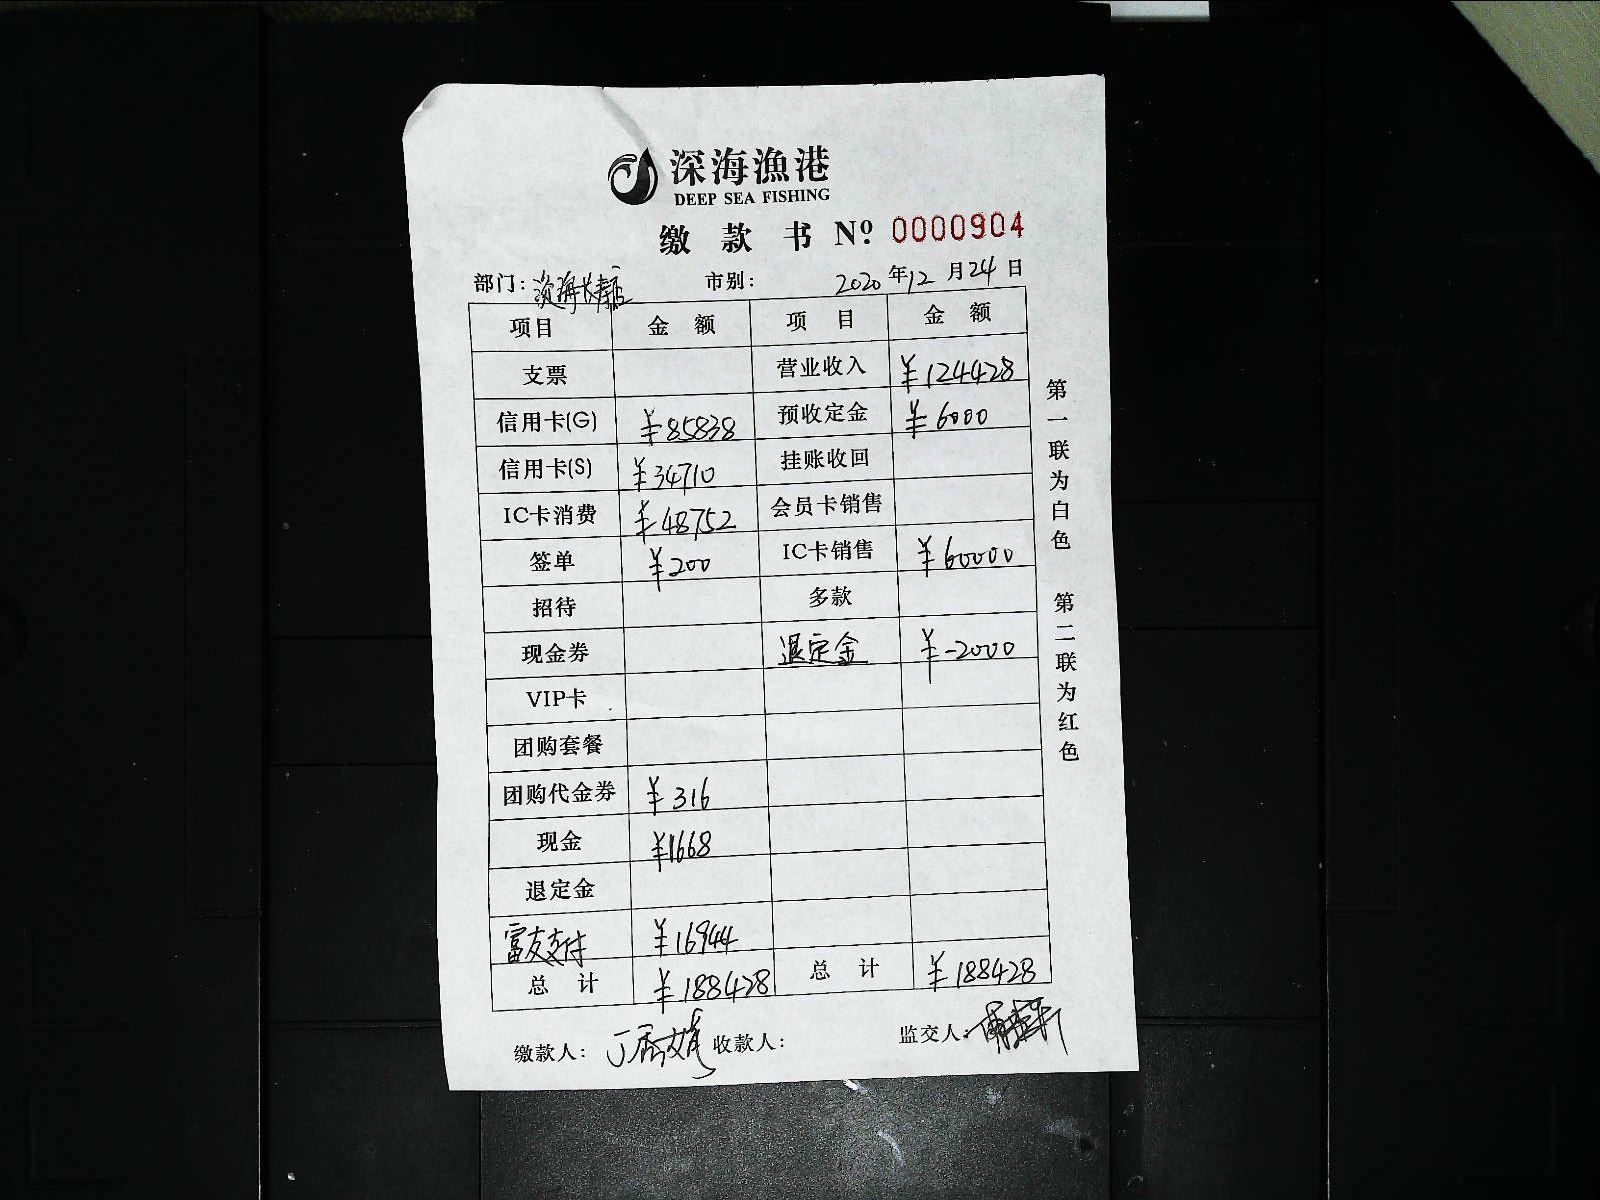 深海漁港
DEEP SEA FISHING
缴款书 Nº. 0000904
部门: 海长寿店 市别: 2020年12月24日
项目 金额 项目 金额
支票 营业收入 ¥124428
信用卡(G) ¥85838 预收定金 ¥6000
信用卡(S) ¥34710 挂账收回
IC卡消费 ¥48752 会员卡销售
签单 ¥200 IC卡销售 ¥60000
招待 多款
现金券 退定金 ¥-2000
VIP卡
团购套餐
团购代金券 ¥316
现金 ¥1668
退定金
富友支付 ¥16944
总计 ¥188428 总计 ¥188428
缴款人: 收款人: 监交人:
第一联为白色 第二联为红色